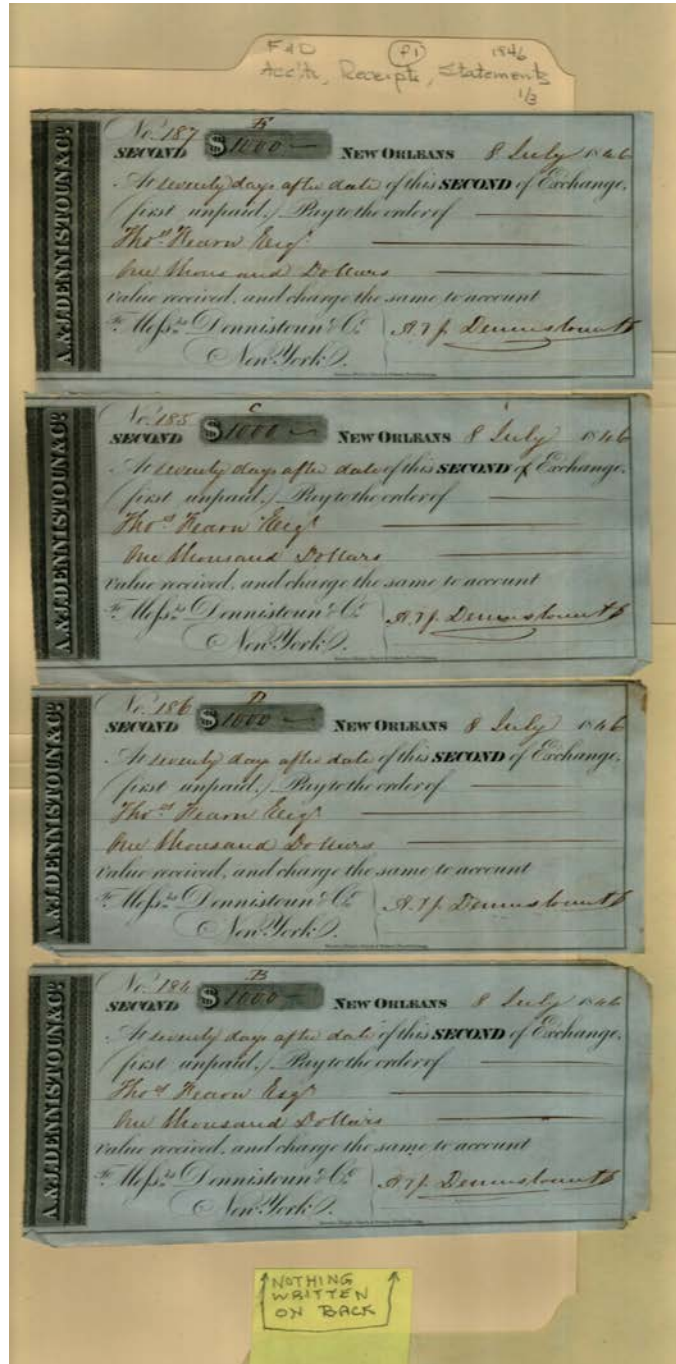 F&D P1 1846
Acc'ts, Receipts, Statements
1/3
A. & J. DENNISTOUN & Co.
No. 187 E
SECOND $1000 — NEW ORLEANS 8 July 1846
At seventy days after date of this SECOND of Exchange,
(first unpaid.) Pay to the order of
Thos Fearn Esqr
One thousand Dollars
value received, and charge the same to account
To Messrs Dennistoun & Co. A. & J. Dennistoun & Co
New York.
A. & J. DENNISTOUN & Co.
No. 185 C
SECOND $1000 — NEW ORLEANS 8 July 1846
At seventy days after date of this SECOND of Exchange,
(first unpaid.) Pay to the order of
Thos Fearn Esqr
One thousand Dollars
value received, and charge the same to account
To Messrs Dennistoun & Co. A. & J. Dennistoun & Co
New York.
A. & J. DENNISTOUN & Co.
No. 186 D
SECOND $1000 — NEW ORLEANS 8 July 1846
At seventy days after date of this SECOND of Exchange,
(first unpaid.) Pay to the order of
Thos Fearn Esqr
One thousand Dollars
value received, and charge the same to account
To Messrs Dennistoun & Co. A. & J. Dennistoun & Co
New York.
A. & J. DENNISTOUN & Co.
No. 184 B
SECOND $1000 — NEW ORLEANS 8 July 1846
At seventy days after date of this SECOND of Exchange,
(first unpaid.) Pay to the order of
Thos Fearn Esqr
One thousand Dollars
value received, and charge the same to account
To Messrs Dennistoun & Co. A. & J. Dennistoun & Co
New York.
NOTHING
WRITTEN
ON BACK